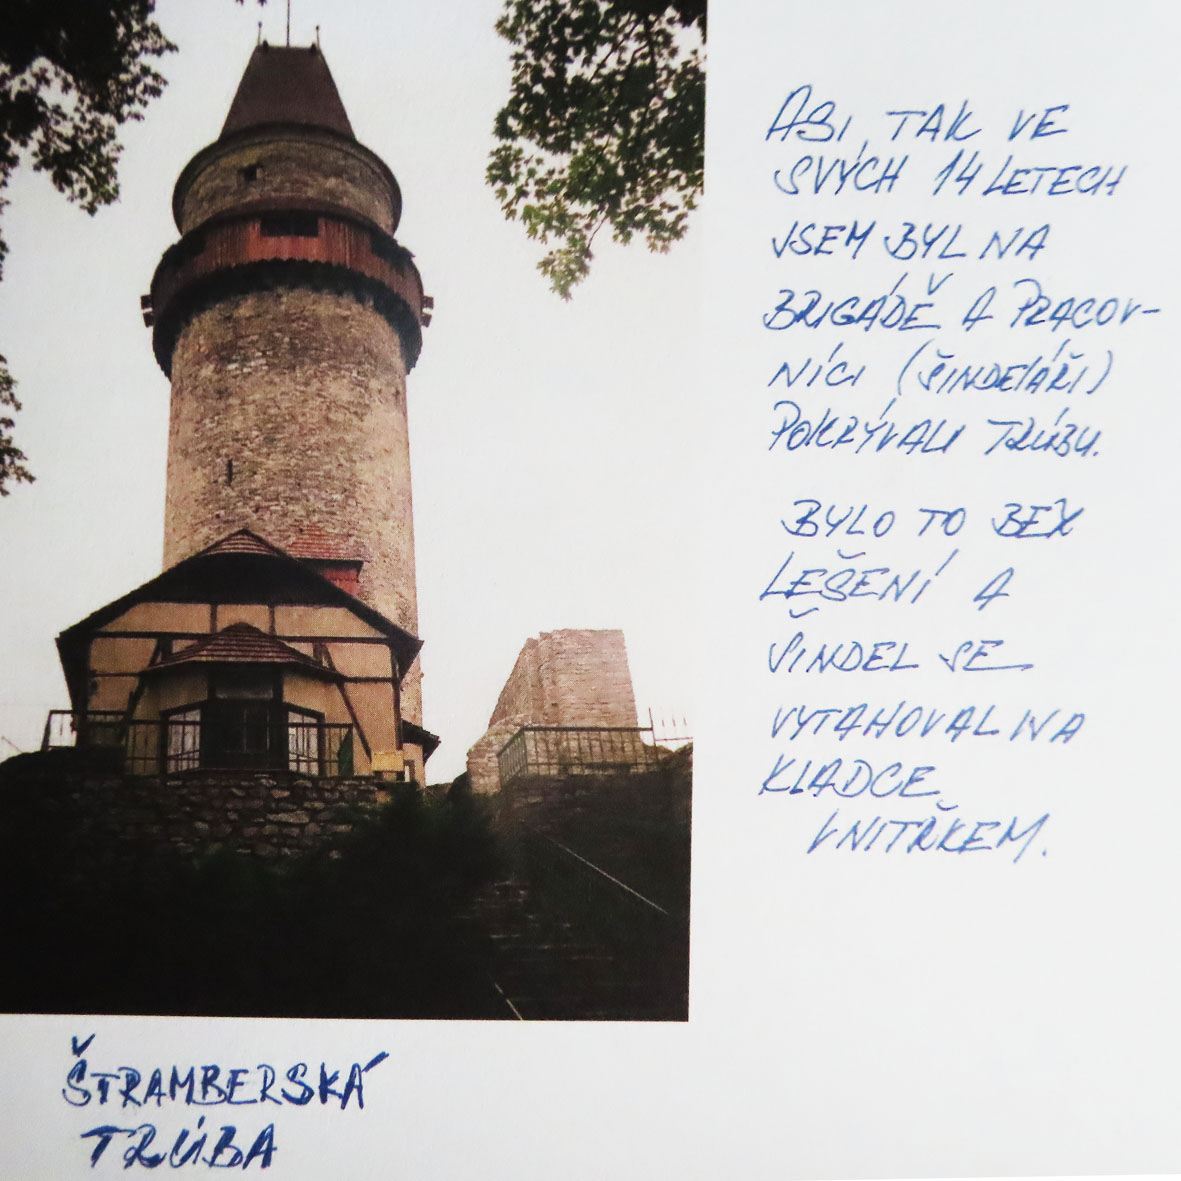 ASI, TAK VE
SVÝCH 14 LETECH
JSEM BYL NA
BRIGÁDĚ A PRACOV-
NÍCI (ŠINDELÁŘI)
POKRÝVALI TRÚBU.
BYLO TO BEZ
LEŠENÍ A
ŠINDEL SE
VYTAHOVAL NA
KLADCE
VNITŘKEM.
ŠTRAMBERSKÁ
TRÚBA